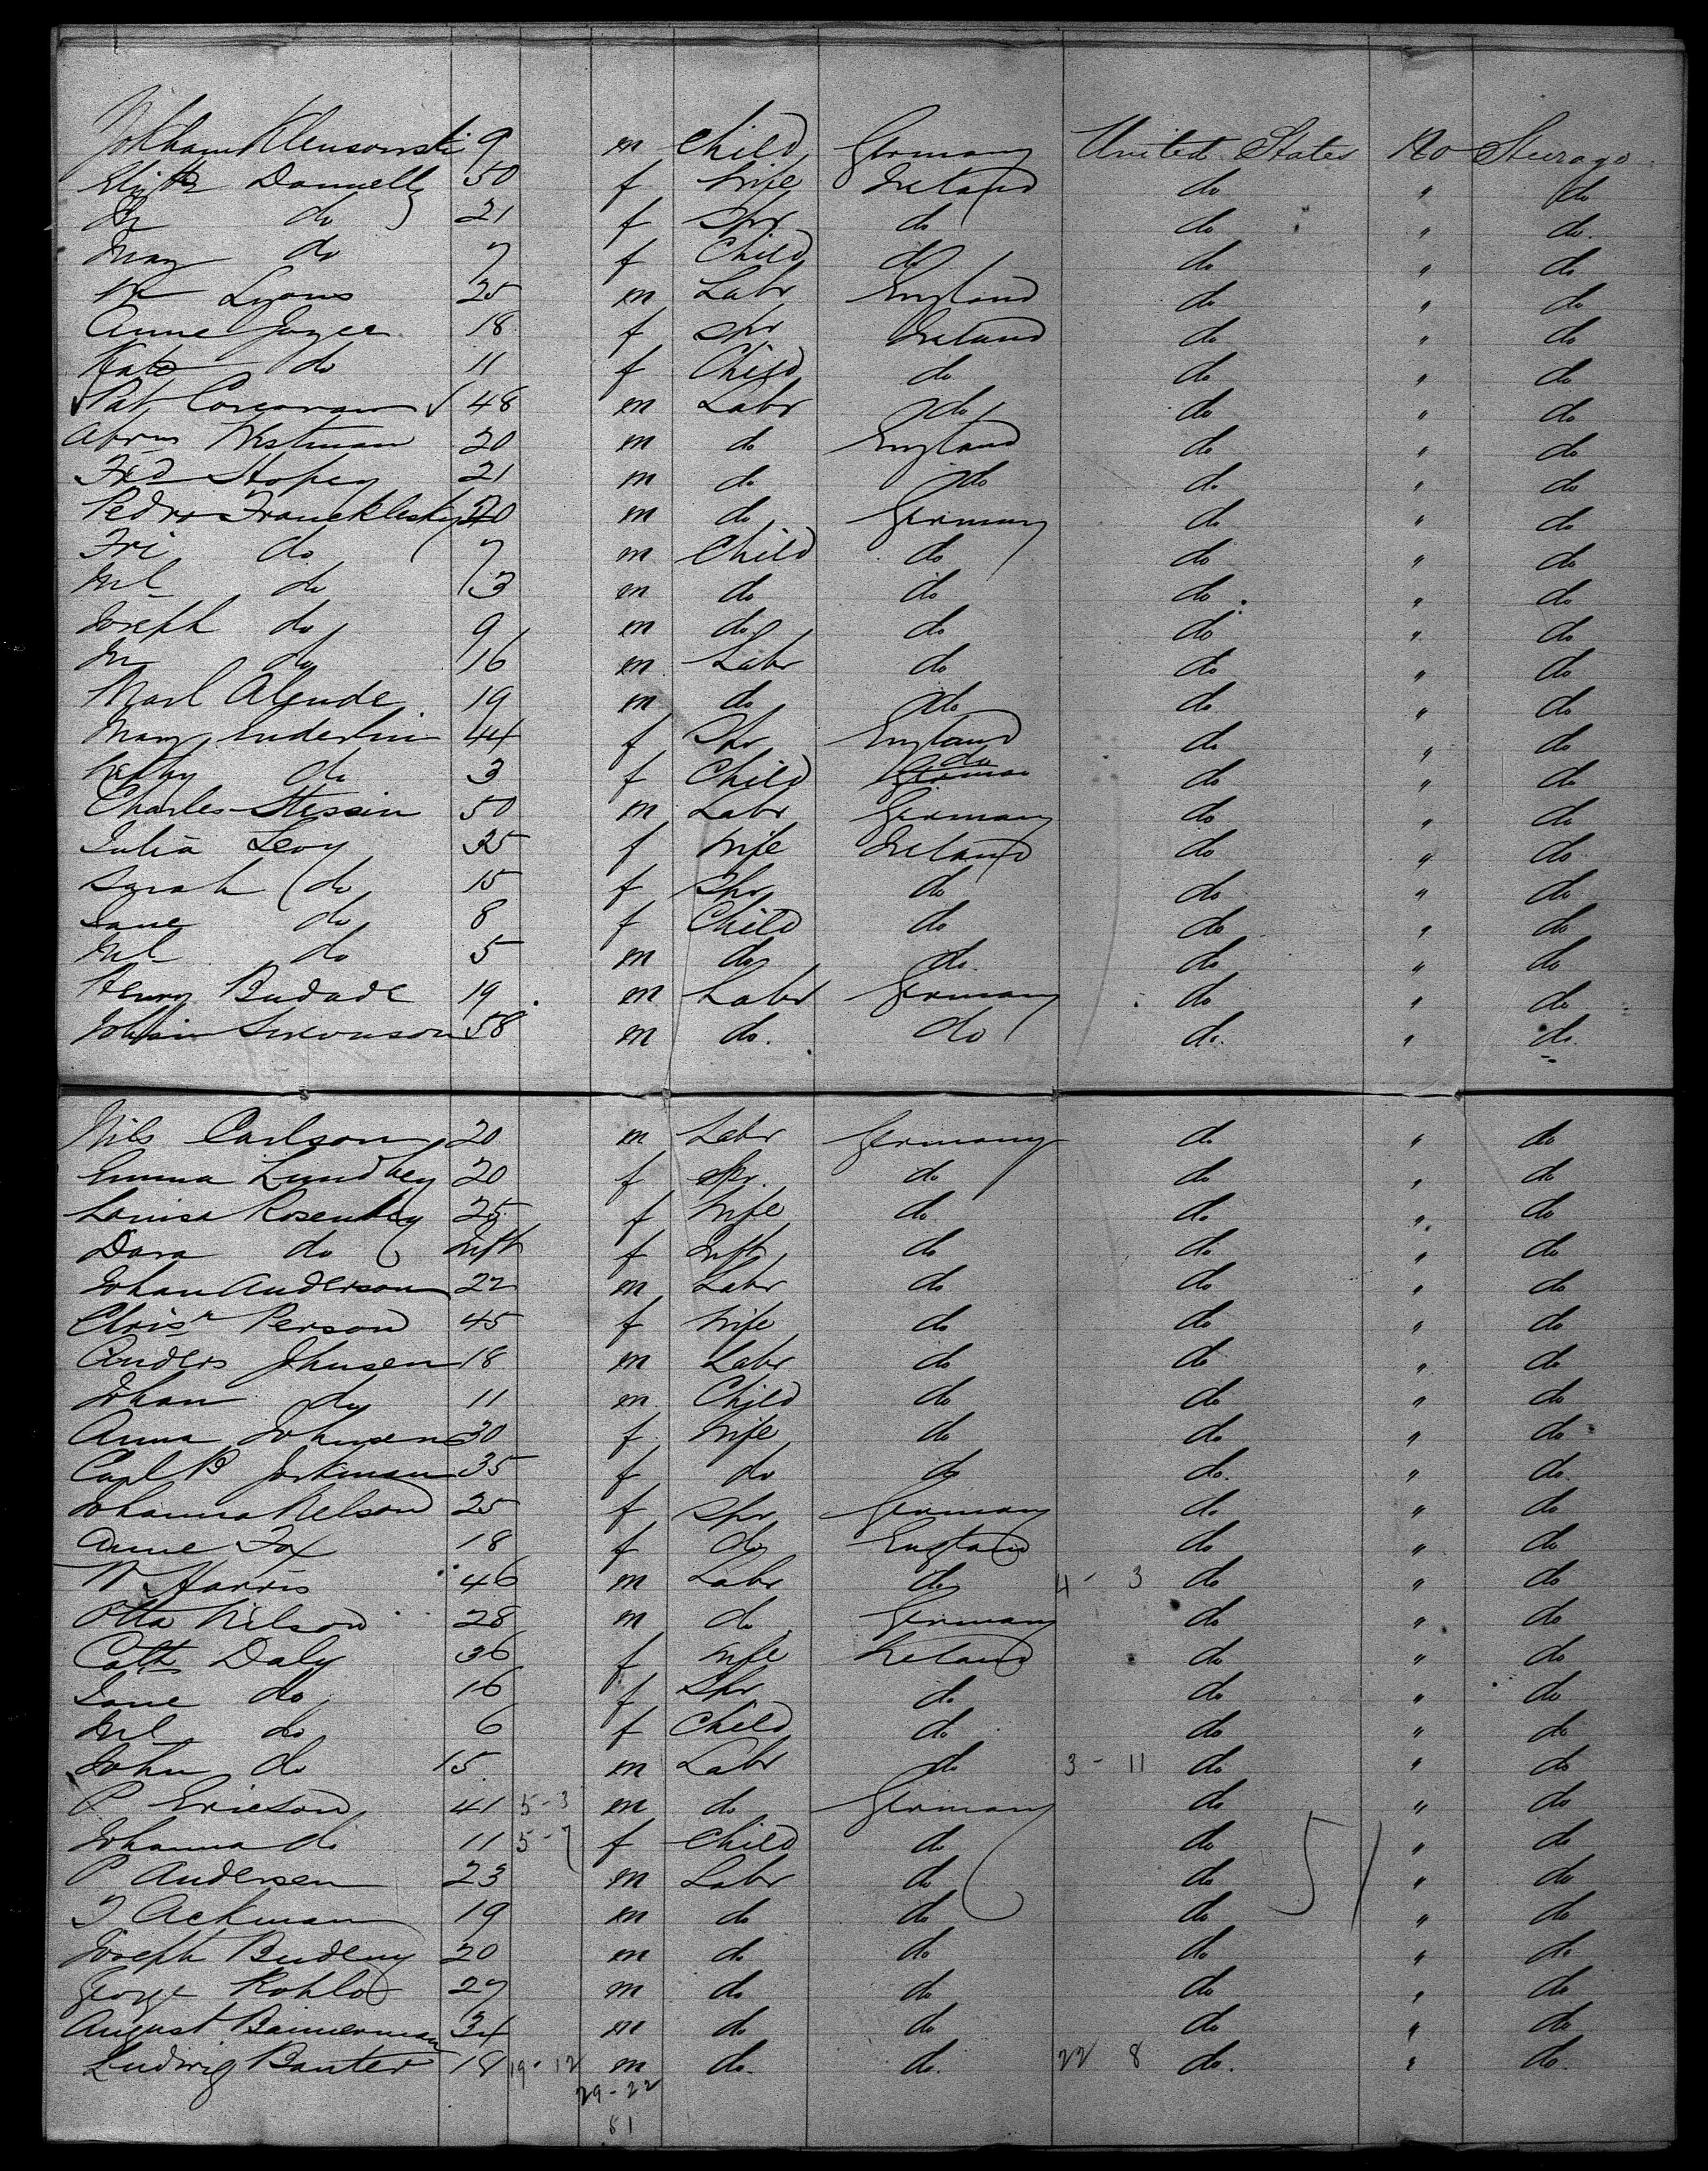 Klensonski 9 m Child Germany United States No Steerage
Elizth Donnelly 50 f Wife Ireland do " do
do 21 f Spr do do " do
May do 7 f Child do do " do
Wm Lyons 25 m Labr England do " do
Anne Joyce 18 f Spr Ireland do " do
Kate do 11 f Child do do " do
Pat Corcoran 48 m Labr do do " do
Abrm Westman 20 m do England do " do
Fred 21 m do do do " do
Pedro m do Germany do " do
Fri do 7 m Child do do " do
Ml do 3 m do do do " do
Joseph do 9 m do do do " do
do 16 m Labr do do " do
19 m do do do " do
Mary Enderlin 44 f Spr England do " do
do 3 f Child do do " do
Charles Stessin 50 m Labr Germany do " do
Julia Levy 35 f Wife Ireland do " do
Sarah do 15 f Spr do do " do
Jane do 8 f Child do do " do
Ml do 5 m do do do " do
Henry Budade 19 m Labr Germany do " do
58 m do do do " do
Nils Carlson 20 m Labr Germany do " do
Emma Lundbey 20 f Spr do do " do
Louisa Rosenbey 25 f Wife do do " do
Dora do Inft f Inft do do " do
Johan Anderson 22 m Labr do do " do
Chrisr Person 45 f Wife do do " do
Anders Jhnsen 18 m Labr do do " do
Johan do 11 m Child do do " do
Anna Johnsen 30 f Wife do do " do
Carl B 35 f do do do " do
Johanna Nelson 25 f Spr Germany do " do
Anne Fox 18 f do England do " do
W Harris 46 m Labr do 4 - 3 do " do
Otto Nilson 28 m do Germany do " do
Cath Daly 36 f Wife Ireland do " do
Jane do 16 f Spr do do " do
Ml do 6 f Child do do " do
John do 15 m Labr do 3 - 11 do " do
P Ericson 41 5-3 m do Germany do " do
Johanna do 11 5-7 f Child do do 51 " do
P Andersen 23 m Labr do do " do
J Ackman 19 m do do do " do
Joseph Budeny 20 m do do do " do
George Kohlo 27 m do do do " do
August Bannerman 34 m do do do " do
Ludwig Banter 18 19-12 m do do 22 8 do " do
29-22
81